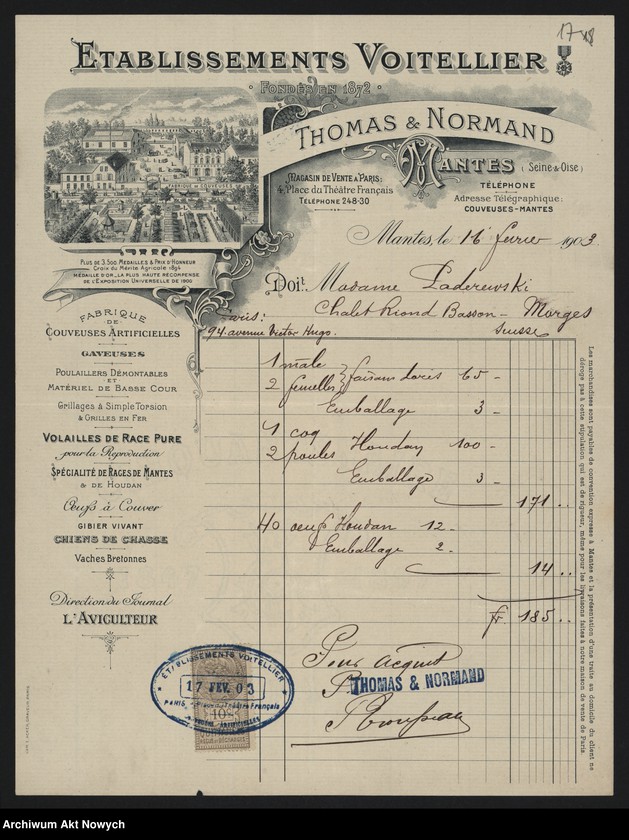 17 48
ETABLISSEMENTS VOITELLIER
FONDÉS EN 1872
THOMAS & NORMAND
MANTES (Seine & Oise)
MAGASIN DE VENTE A PARIS:
4, Place du Théâtre Français
TÉLÉPHONE 248-30
TÉLÉPHONE
Adresse Télégraphique:
COUVEUSES-MANTES
FABRIQUE DE COUVEUSES
PLUS DE 3.500 MÉDAILLES & PRIX D'HONNEUR
Croix du Mérite Agricole 1894
MÉDAILLE D'OR, LA PLUS HAUTE RÉCOMPENSE
DE L'EXPOSITION UNIVERSELLE DE 1900
Mantes, le 16 fevrier 1903
Doit Madame Paderewski
Chalet Riond Bosson - Morges
Suisse
Paris:
94. avenue Victor Hugo.
FABRIQUE
DE
COUVEUSES ARTIFICIELLES
GAVEUSES
POULAILLERS DÉMONTABLES
ET
MATÉRIEL DE BASSE COUR
Grillages à Simple Torsion
& GRILLES EN FER
VOLAILLES DE RACE PURE
pour la Reproduction
SPÉCIALITÉ DE RACES DE MANTES
& DE HOUDAN
Œufs à Couver
GIBIER VIVANT
CHIENS DE CHASSE
Vaches Bretonnes
Direction du Journal
L'AVICULTEUR
1 mâle
2 femelles } faisans dorés 65 -
Emballage 3 -
1 coq
2 poules Houdan 100 -
Emballage 3 -
171 ..
40 oeufs Houdan 12 -
Emballage 2 -
14 ..
fr. 185 ..
Pour acquit
P.
THOMAS & NORMAND
ÉTABLISSEMENTS VOITELLIER
17 FEV. 03
PARIS, 4, Place du Théâtre Français
10c
Les marchandises sont payables de convention expresse à Mantes et la présentation d'une traite au domicile du client ne
déroge pas à cette stipulation qui est de rigueur, même pour les livraisons faites à notre maison de vente de Paris.
Archiwum Akt Nowych